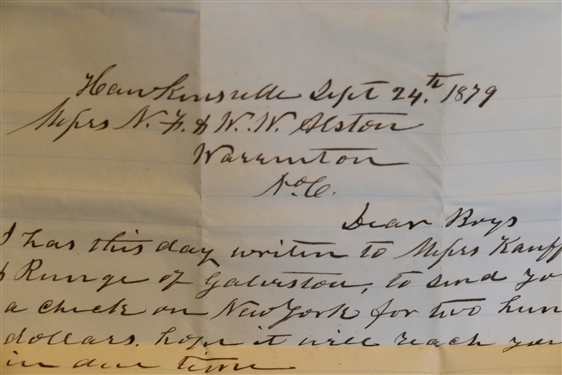 Hawkinsville Sept 24.th 1879
Messrs N. F. & W. W. Alston
Warrenton
No. C.
Dear Boys
I has this day writen to Messrs Kauff
& Runge of Galveston, to send yo
a check on New York for two hun
dollars. hope it will reach you
in due time